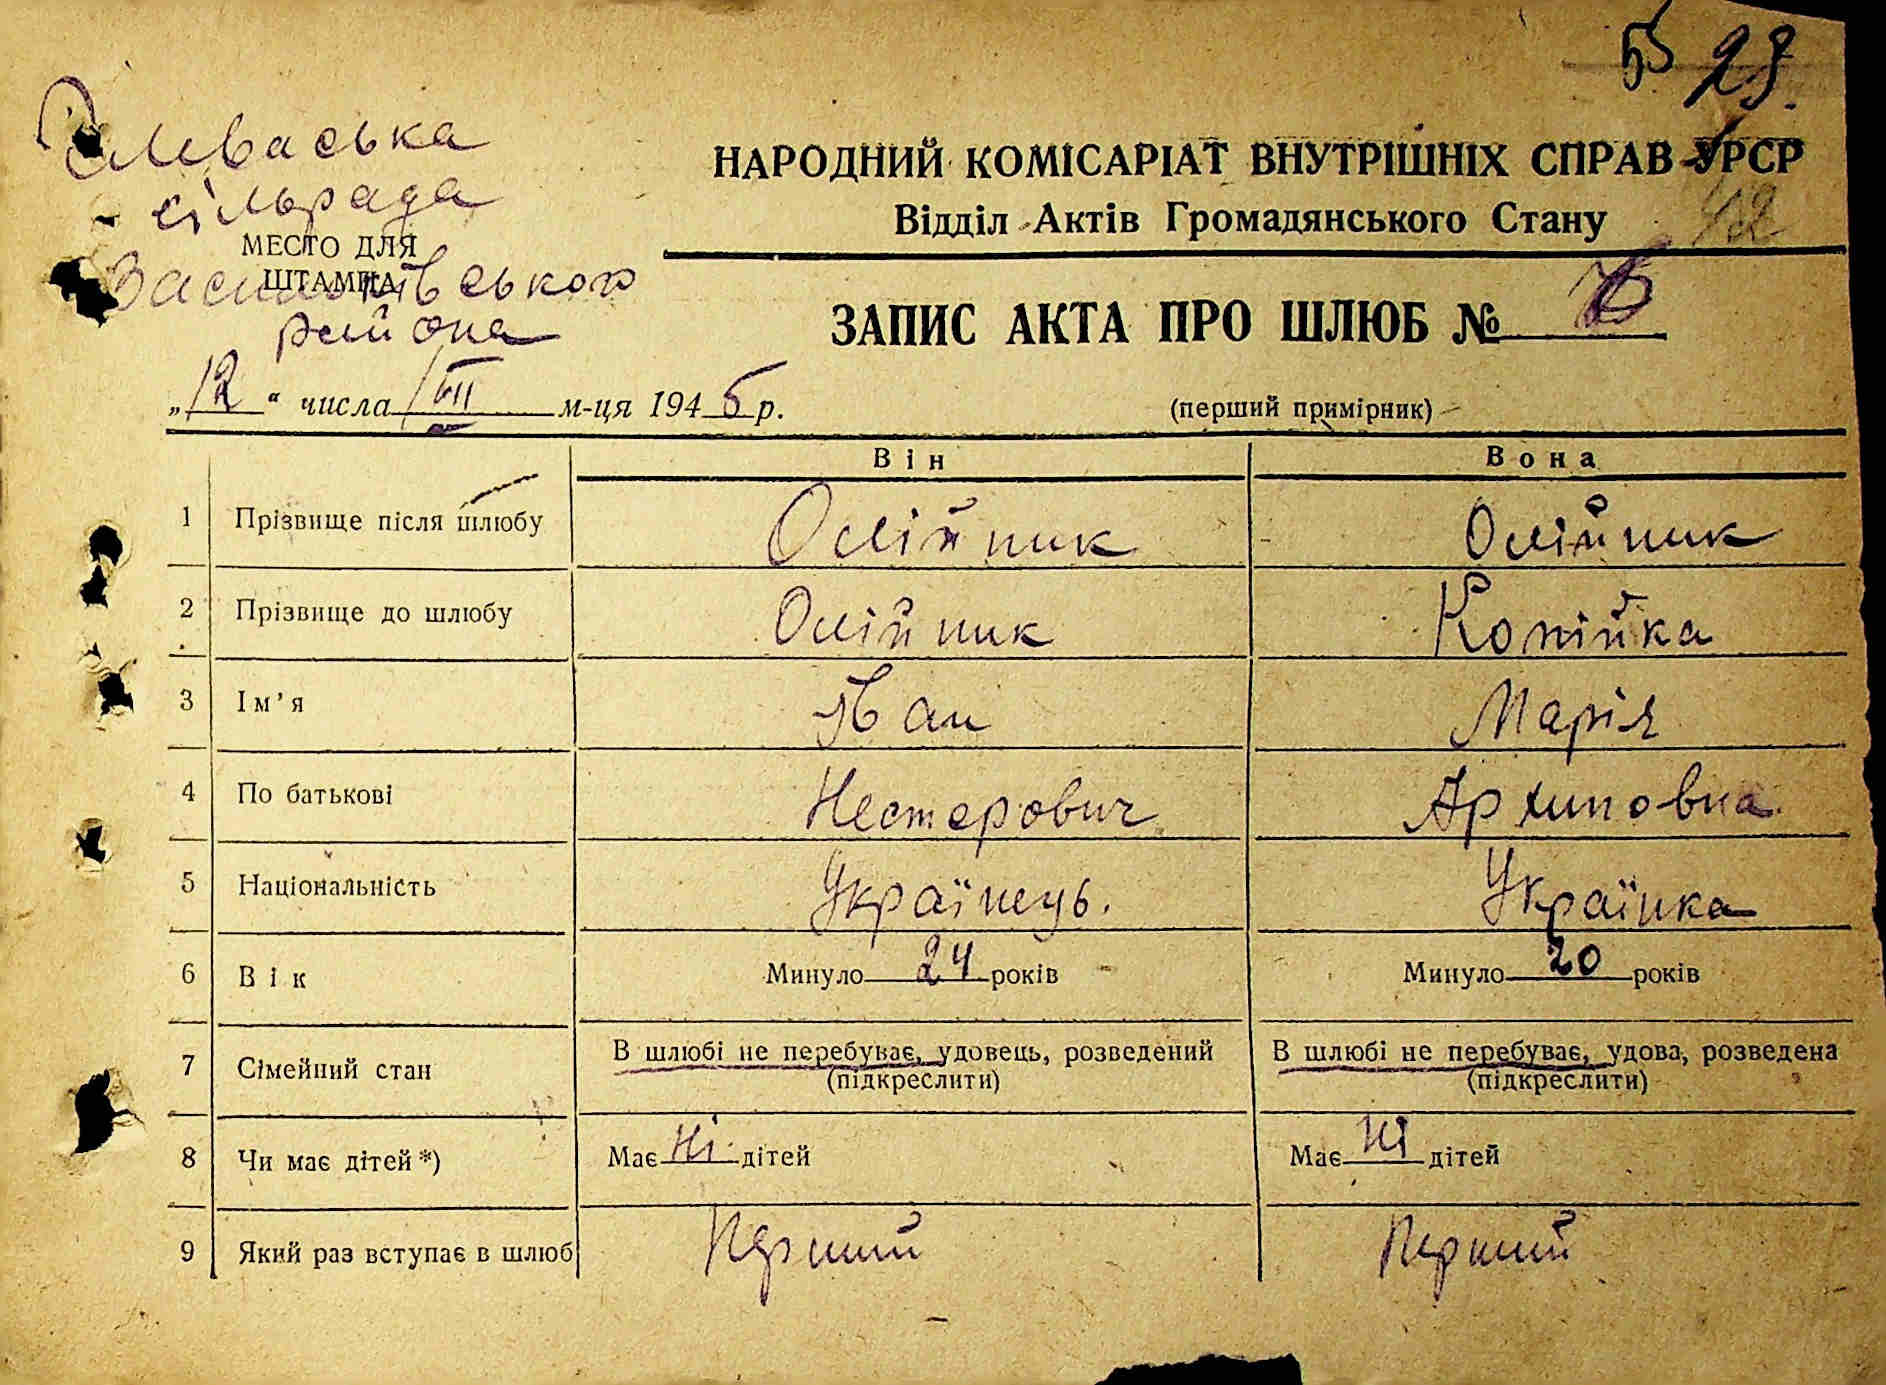 55 29.
сільрада
НАРОДНИЙ КОМІСАРІАТ ВНУТРІШНІХ СПРАВ УРСР
Відділ Актів Громадянського Стану
42
МЕСТО ДЛЯ
ШТАМПА
Василівського
району
ЗАПИС АКТА ПРО ШЛЮБ №
„12“ числа VII м-ця 1945 р.
(перший примірник)
Він Вона
1 Прізвище після шлюбу Олійник Олійник
2 Прізвище до шлюбу Олійник Копійка
3 Ім'я Іван Марія
4 По батькові Нестерович Архиповна
5 Національність Українець. Українка
6 Вік Минуло 24 років Минуло 20 років
7 Сімейний стан В шлюбі не перебуває, удовець, розведений (підкреслити) В шлюбі не перебуває, удова, розведена (підкреслити)
8 Чи має дітей *) Має ні дітей Має ні дітей
9 Який раз вступає в шлюб Перший Перший